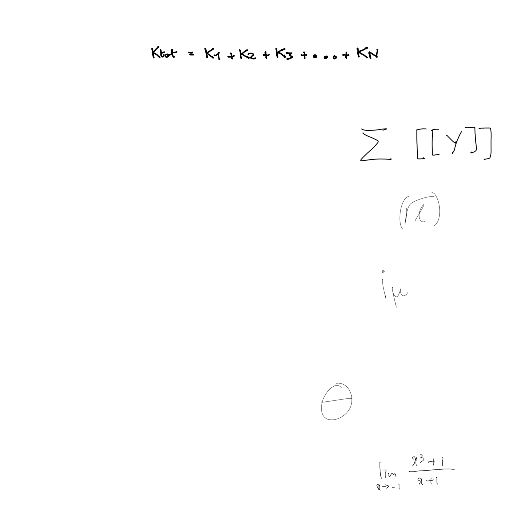 Ktot = K1 + K2 + K3 + ... + KN
∑ [[Y]]
(π)
iμ
θ
lim x→-1 x³+1 / x+1